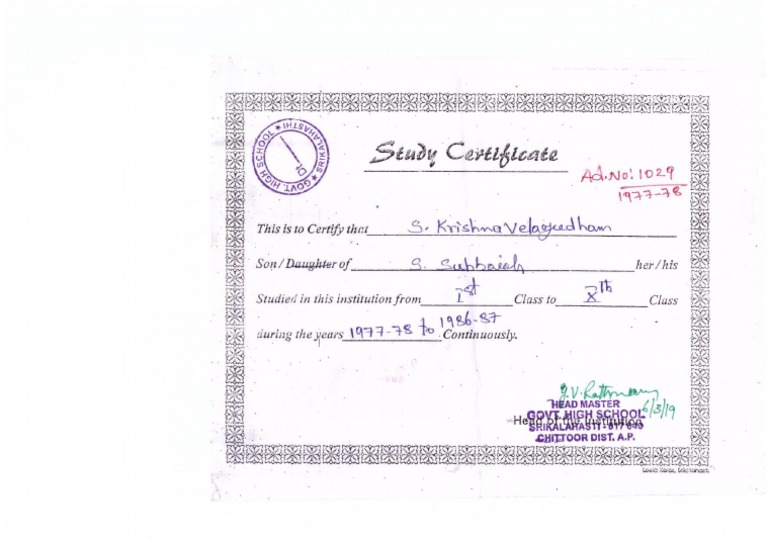 GOVT. HIGH SCHOOL ★ SRIKALAHASTHI ★
Dt.
Study Certificate
Ad.No: 1029
1977-78
This is to Certify that S. Krishna Velayudham
Son / Daughter of S. Subbaiah her / his
Studied in this institution from Ist Class to Xth Class
during the years 1977-78 to 1986-87 Continuously.
6/3/19
HEAD MASTER
GOVT. HIGH SCHOOL
Head of the Institution
SRIKALAHASTI - 517 640
CHITTOOR DIST. A.P.